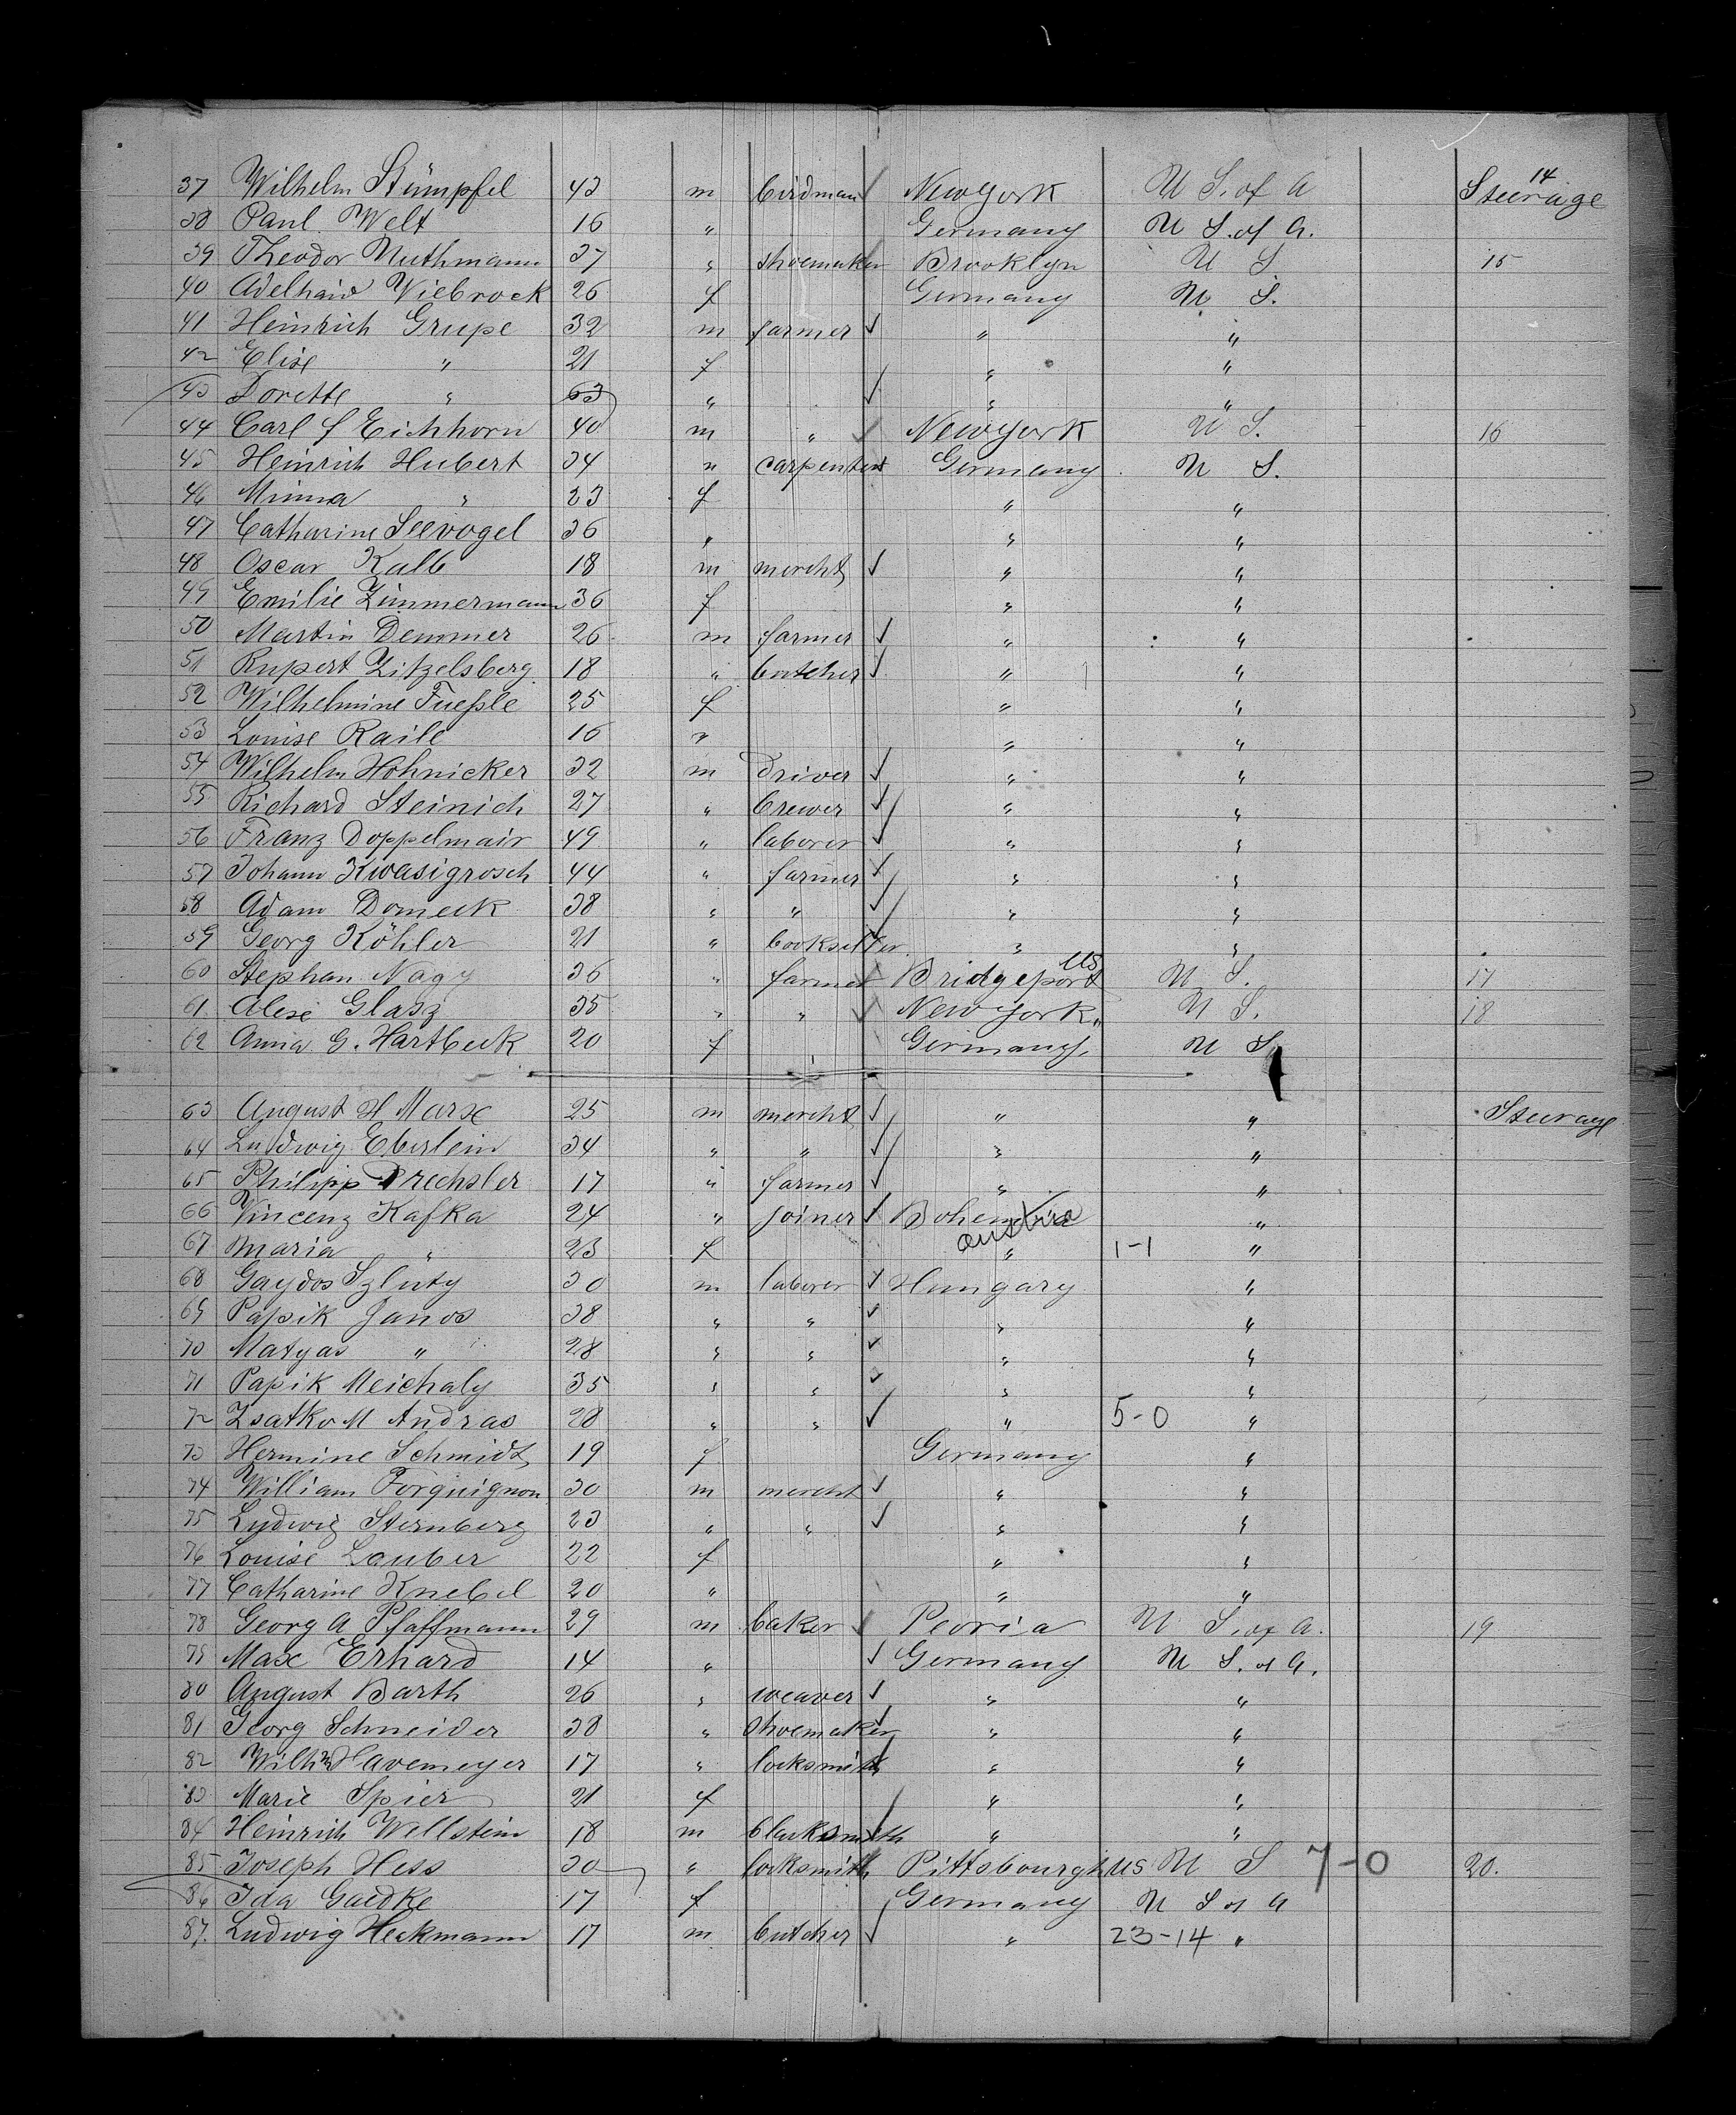 14
37 Wilhelm Stümpfel 43 m birdman New York U S. of A Steerage
38 Paul Welt 16 " Germany U S. of A.
39 Theodor Nuthmann 37 " shoemaker Brooklyn U S 15
40 Adelhaid Viebrock 26 f Germany U S.
41 Heinrich Grupe 32 m farmer " "
42 Elise " 21 f " "
43 Dorette " 63 " " "
44 Carl f Eichhorn 40 m " New York U S. 16
45 Heinrich Hubert 34 " carpenter Germany U S.
46 Minna " 23 f " "
47 Catharine Seevogel 36 " " "
48 Oscar Kalb 18 m mercht " "
49 Emilie Zimmermann 36 f " "
50 Martin Demmer 26 m farmer " "
51 Rupert Zitzelsberg. 18 " butcher " "
52 Wilhelmine Fueßle 25 f " "
53 Louise Raile 16 " " "
54 Wilhelm Hohnicker 32 m driver " "
55 Richard Steinich 27 " brewer " "
56 Franz Doppelmair 49 " laborer " "
57 Johann Kwasigrosch 44 " farmer " "
58 Adam Domeck 38 " " " "
59 Georg Köhler 21 " bookseller " "
60 Stephan Nagy 36 " farmer Bridgeport US U S. 17
61. Alese Glasz 35 " " New York " U S. 18
62 Anna G. Hartbeck 20 f Germany. U S.
63 August H Marx 25 m mercht " " Steerage
64 Ludwig Eberlein 34 " " " "
65 Philipp Drechsler 17 " farmer " "
66 Vincenz Kafka 24 " joiner Bohemia "
Austria
67 Maria " 23 f " 1-1 "
68 Gaydos Szluty 30 m laborer Hungary "
69 Papik Janos 38 " " " "
70 Matyas " 28 " " " "
71 Papik Meichaly 35 " " " "
72 Zsatko M Andras 28 " " " 5-0 "
73 Hermine Schmidt 19 f Germany "
74 William Forquignon 30 m mercht " "
75 Ludwig Sternberg 23 " " " "
76 Louise Lauber 22 f " "
77 Catharine Knebel 20 " " "
78 Georg A Pfaffmann 29 m baker Peoria U S. of A. 19
79 Max Erhard 14 " Germany U S. of A.
80 August Barth 26 " weaver " "
81 Georg Schneider 38 " shoemaker " "
82 Wilhm Havemeyer 17 " locksmith " "
83 Marie Spier 21 f " "
84 Heinrich Wellstein 18 m blacksmith " "
85 Joseph Hess 30 " locksmith Pittsbourgh US U S 7-0 20.
86 Ida Gaedke 17 f Germany U S of A
87. Ludwig Heckmann 17 m butcher " 23-14 "